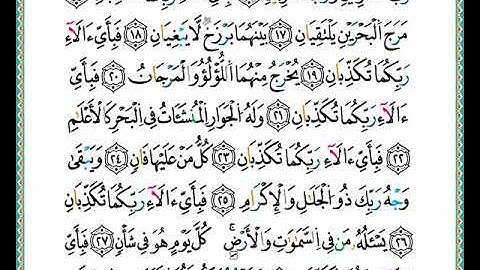 مَرَجَ اَ۬لْبَحْرَيْنِ يَلْتَقِيَٰنِ ١٧ بَيْنَهُمَا بَرْزَخٌ لَّا يَبْغِيَٰنِ ١٨ فَبِأَيِّ ءَالَآءِ
رَبِّكُمَا تُكَذِّبَٰنِ ١٩ يُخْرَجُ مِنْهُمَا اَ۬للُّؤْلُؤُ وَالْمَرْجَانُ ٢٠ فَبِأَيِّ
ءَالَآءِ رَبِّكُمَا تُكَذِّبَٰنِ ٢١ وَلَهُ اُ۬لْجَوَارِ اِ۬لْمُنشَـَٔاتُ فِي اِ۬لْبَحْرِ كَالْأَعْلَٰمِ
٢٢ فَبِأَيِّ ءَالَآءِ رَبِّكُمَا تُكَذِّبَٰنِ ٢٣ كُلُّ مَنْ عَلَيْهَا فَانٖ ٢٤ وَيَبْقَىٰ
وَجْهُ رَبِّكَ ذُو اُ۬لْجَلَٰلِ وَالْإِكْرَامِ ٢٥ فَبِأَيِّ ءَالَآءِ رَبِّكُمَا تُكَذِّبَٰنِ
٢٦ يَسْـَٔلُهُ مَن فِي اِ۬لسَّمَٰوَٰتِ وَالْأَرْضِ كُلَّ يَوْمٍ هُوَ فِي شَأْنٖ ٢٧ فَبِأَيِّ